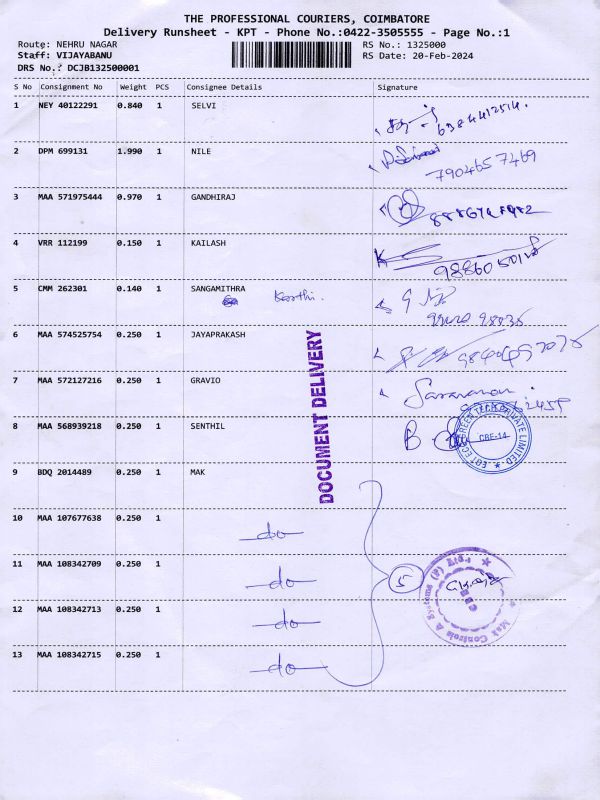 THE PROFESSIONAL COURIERS, COIMBATORE
Delivery Runsheet - KPT - Phone No.:0422-3505555 - Page No.:1
Route: NEHRU NAGAR RS No.: 1325000
Staff: VIJAYABANU RS Date: 20-Feb-2024
DRS No.: DCJB132500001
S No Consignment No Weight PCS Consignee Details Signature
1 NEY 40122291 0.840 1 SELVI
6384412514.
2 DPM 699131 1.990 1 NILE
7904657469
3 MAA 571975444 0.970 1 GANDHIRAJ
4 VRR 112199 0.150 1 KAILASH
5 CMM 262301 0.140 1 SANGAMITHRA
Karthi.
6 MAA 574525754 0.250 1 JAYAPRAKASH
7 MAA 572127216 0.250 1 GRAVIO
Saravanan
8 MAA 568939218 0.250 1 SENTHIL
CBE-14
PRIVATE LIMITED
DOCUMENT DELIVERY
9 BDQ 2014489 0.250 1 MAK
10 MAA 107677638 0.250 1
do
11 MAA 108342709 0.250 1
do
5
Mak Controls & Systems (P) Ltd
12 MAA 108342713 0.250 1
do
13 MAA 108342715 0.250 1
do